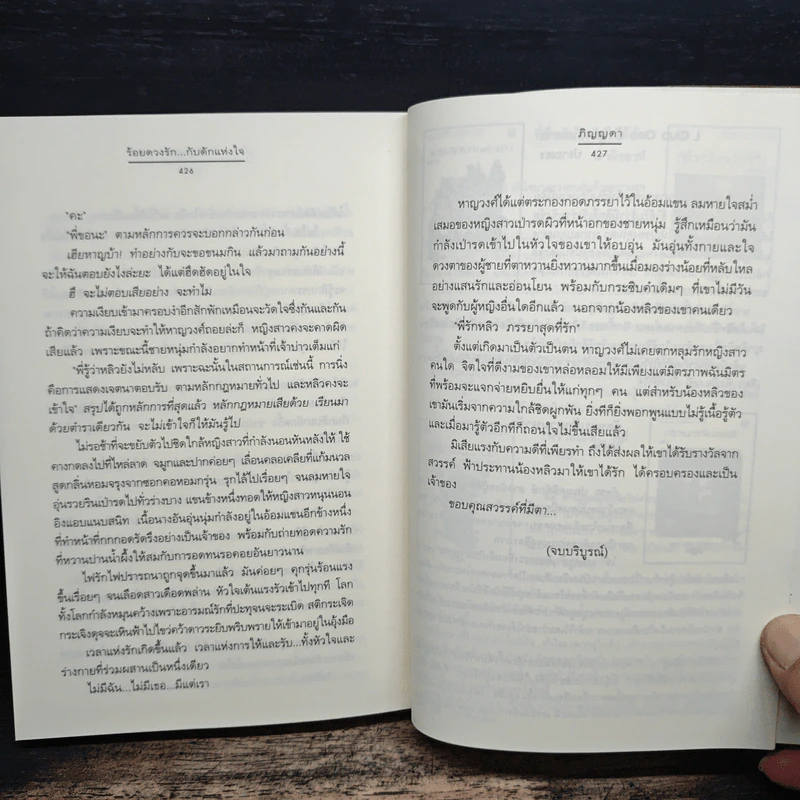 ร้อยดวงรัก...กับดักแห่งใจ
426
"คะ"
"พี่ขอนะ" ตามหลักการควรจะบอกกล่าวกันก่อน
เฮียหาญบ้า! ทำอย่างกับจะขอขนมกิน แล้วมาถามกันอย่างนี้
จะให้ฉันตอบยังไงล่ะยะ ได้แต่ฮึดฮัดอยู่ในใจ
ฮึ จะไม่ตอบเสียอย่าง จะทำไม
ความเงียบเข้ามาครอบงำอีกสักพักเหมือนจะวัดใจซึ่งกันและกัน
ถ้าคิดว่าความเงียบจะทำให้หาญวงศ์ถอยล่ะก็ หญิงสาวคงจะคาดผิด
เสียแล้ว เพราะขณะนี้ชายหนุ่มกำลังอยากทำหน้าที่เจ้าบ่าวเต็มแก่
"พี่รู้ว่าหลิวยังไม่หลับ เพราะฉะนั้นในสถานการณ์เช่นนี้ การนิ่ง
คือการแสดงเจตนาตอบรับ ตามหลักกฎหมายทั่วไป และหลิวคงจะ
เข้าใจ" สรุปได้ถูกหลักการที่สุดแล้ว หลักกฎหมายเสียด้วย เรียนมา
ด้วยตำราเดียวกัน จะไม่เข้าใจก็ให้มันรู้ไป
ไม่รอช้าที่จะขยับตัวไปชิดใกล้หญิงสาวที่กำลังนอนหันหลังให้ ใช้
คางกดลงไปที่ไหล่ลาด จมูกและปากค่อยๆ เลื่อนคลอเคลียที่แก้มนวล
สูดกลิ่นหอมจรุงจากซอกคอหอมกรุ่น รุกไล้ไปเรื่อยๆ จนลมหายใจ
อุ่นรวยรินเป่ารดไปทั่วร่างบาง แขนข้างหนึ่งทอดให้หญิงสาวหนุนนอน
อิงแอบแนบสนิท เนื้อนางอันอุ่นนุ่มกำลังอยู่ในอ้อมแขนอีกข้างหนึ่ง
ที่ทำหน้าที่กกกอดรัดรึงอย่างเป็นเจ้าของ พร้อมกับถ่ายทอดความรัก
ที่หวานปานน้ำผึ้งให้สมกับการอดทนรอคอยอันยาวนาน
ไฟรักไฟปรารถนาถูกจุดขึ้นมาแล้ว มันค่อยๆ คุกรุ่นร้อนแรง
ขึ้นเรื่อยๆ จนเลือดสาวเดือดพล่าน หัวใจเต้นแรงรัวเข้าไปทุกที โลก
ทั้งโลกกำลังหมุนคว้างเพราะอารมณ์รักที่ปะทุจนจะระเบิด สติกระเจิด
กระเจิงดุจจะเหินฟ้าไปไขว่คว้าดาวระยิบพริบพรายให้เข้ามาอยู่ในอุ้งมือ
เวลาแห่งรักเกิดขึ้นแล้ว เวลาแห่งการให้และรับ...ทั้งหัวใจและ
ร่างกายที่ร่วมผสานเป็นหนึ่งเดียว
ไม่มีฉัน...ไม่มีเธอ...มีแต่เรา
ภิญญดา
427
หาญวงศ์ได้แต่ตระกองกอดภรรยาไว้ในอ้อมแขน ลมหายใจสม่ำ
เสมอของหญิงสาวเป่ารดผิวที่หน้าอกของชายหนุ่ม รู้สึกเหมือนว่ามัน
กำลังเป่ารดเข้าไปในหัวใจของเขาให้อบอุ่น มันอุ่นทั้งกายและใจ
ดวงตาของผู้ชายที่ตาหวานยิ่งหวานมากขึ้นเมื่อมองร่างน้อยที่หลับใหล
อย่างแสนรักและอ่อนโยน พร้อมกับกระซิบคำเดิมๆ ที่เขาไม่มีวัน
จะพูดกับผู้หญิงอื่นใดอีกแล้ว นอกจากน้องหลิวของเขาคนเดียว
"พี่รักหลิว ภรรยาสุดที่รัก"
ตั้งแต่เกิดมาเป็นตัวเป็นตน หาญวงศ์ไม่เคยตกหลุมรักหญิงสาว
คนใด จิตใจที่ดีงามของเขาหล่อหลอมให้มีเพียงแต่มิตรภาพฉันมิตร
ที่พร้อมจะแจกจ่ายหยิบยื่นให้แก่ทุกๆ คน แต่สำหรับน้องหลิวของ
เขามันเริ่มจากความใกล้ชิดผูกพัน ยิ่งทีก็ยิ่งพอกพูนแบบไม่รู้เนื้อรู้ตัว
และเมื่อมารู้ตัวอีกทีก็ถอนใจไม่ขึ้นเสียแล้ว
มิเสียแรงกับความดีที่เพียรทำ ถึงได้ส่งผลให้เขาได้รับรางวัลจาก
สวรรค์ ฟ้าประทานน้องหลิวมาให้เขาได้รัก ได้ครอบครองและเป็น
เจ้าของ
ขอบคุณสวรรค์ที่มีตา...
(จบบริบูรณ์)